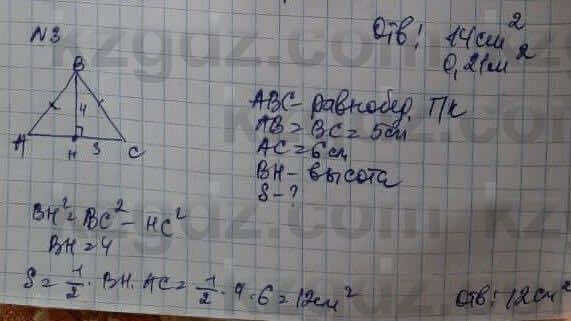 N3
Отв: 14см²
0,21м²
B
4
A
H
3
C
ABC - равнобед. Пк
AB = BC = 5см
AC = 6см
BH - высота
S - ?
BH² = BC² - HC²
BH = 4
S = 1/2 · BH · AC = 1/2 · 4 · 6 = 12см²
Отв: 12см²